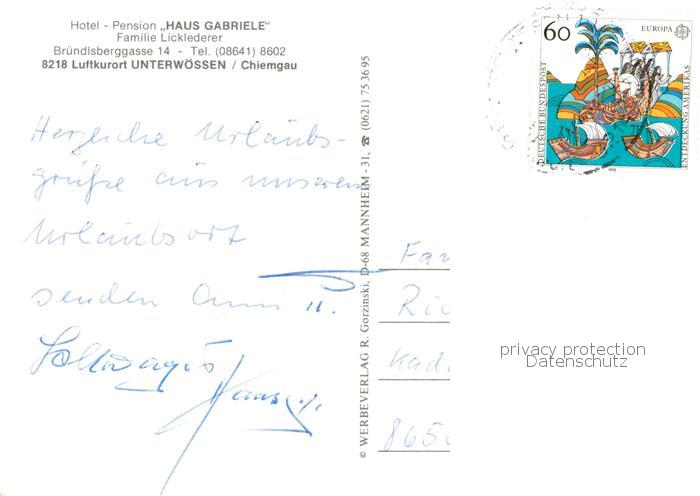 Hotel - Pension „HAUS GABRIELE"
Familie Licklederer
Bründlsberggasse 14 - Tel. (08641) 8602
8218 Luftkurort UNTERWÖSSEN / Chiemgau
Herzliche Urlaubs-
grüße aus unserem
Urlaubsort
senden
© WERBEVERLAG R. Gorzinski, D-68 MANNHEIM - 31, ☎ (0621) 75 36 95
60
EUROPA
DEUTSCHE BUNDESPOST
ENTDECKUNG AMERIKAS
1992
Fa
Ri
Kad
865
privacy protection
Datenschutz